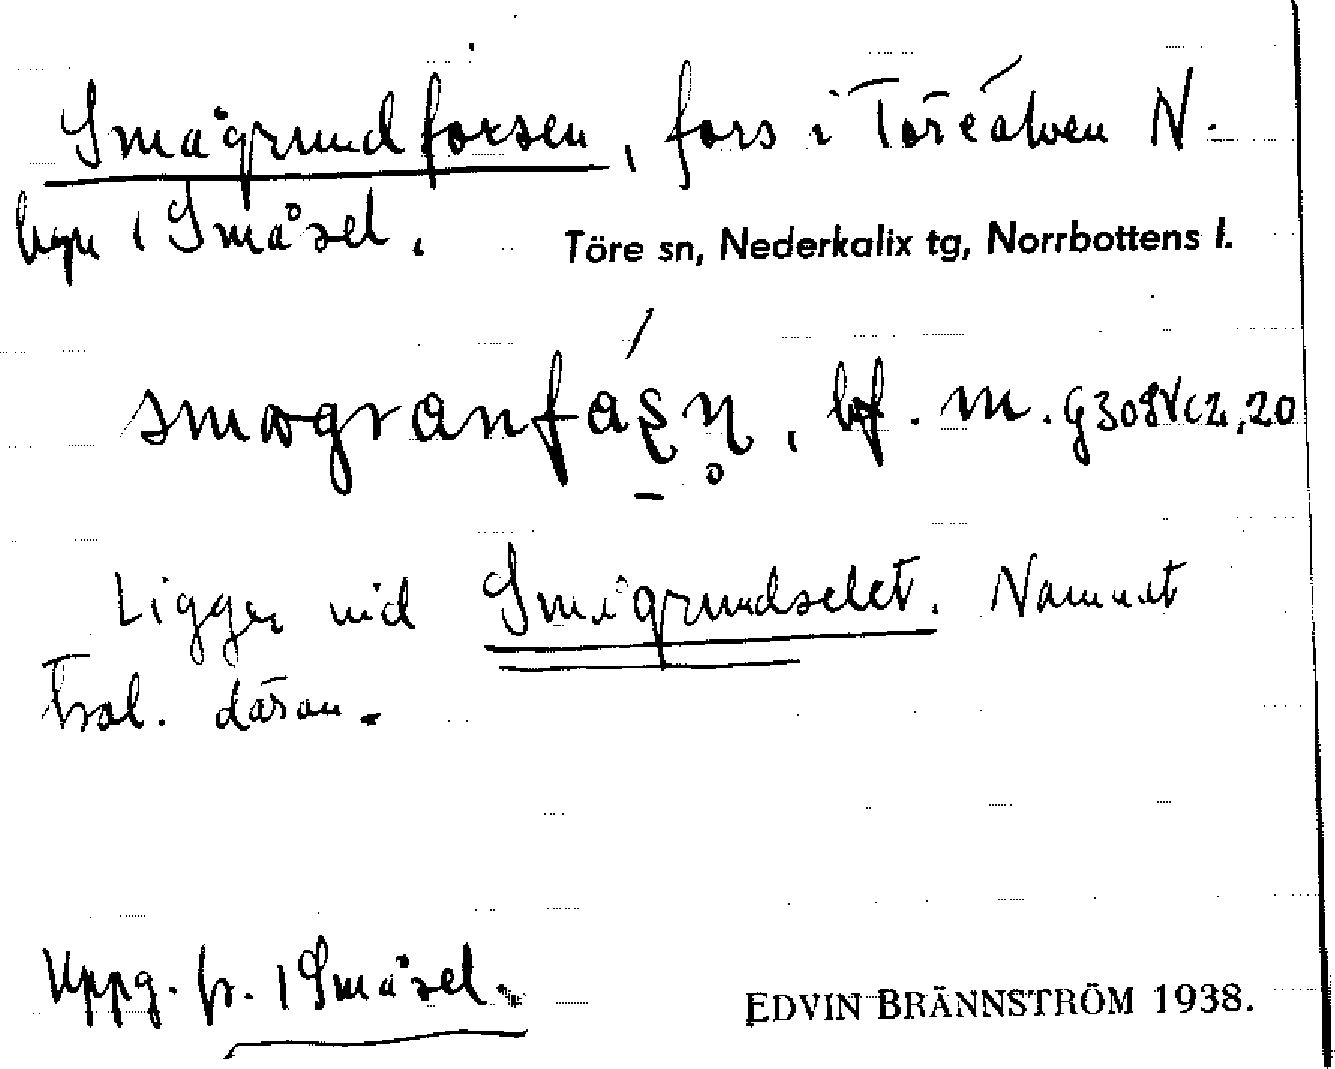 Smågrundforsen, fors i Töreälven N.
byn 1 Småsel.
Töre sn, Nederkalix tg, Norrbottens l.
bf. m.
Ligger vid Smågrundselet. Namnet
trol. därav.
Uppg. fr. 1 Småsel.
EDVIN BRÄNNSTRÖM 1938.